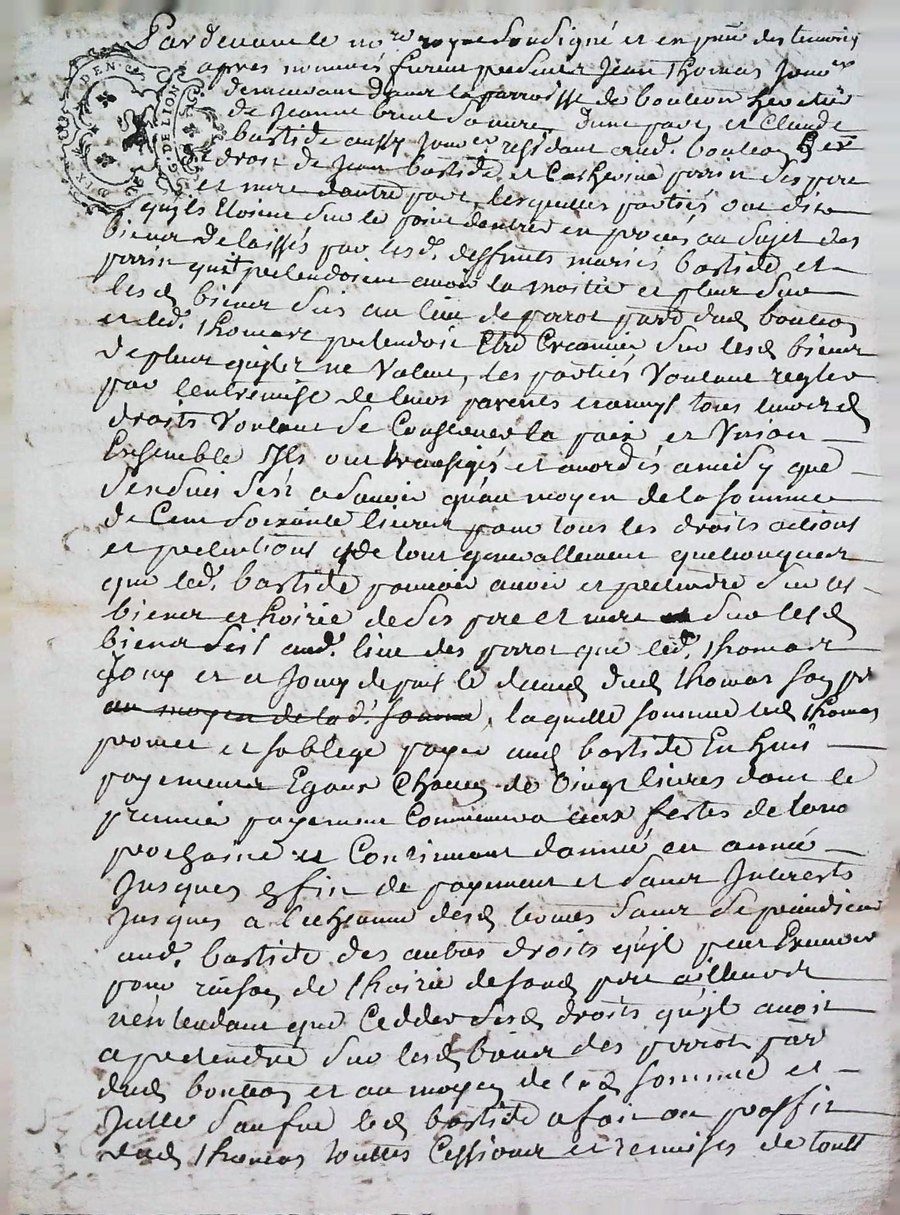 Par devant le no.re royal soussigné et en p.nce des temoins
apres nommés furent presents Jean Thomas Jour.er
demeurant dans la parroisse de boulieu heritier
de Jeanne sa mere, d'une part, et Claude
bastide aussy Jour.er residant aud. boulieu
droit de Jean bastide et Catherine perrin ses pere
et mere d'autre part, lesquelles parties ont dit
qu'ils Etoint sur le point d'entrer en procés au sujet des
biens delaissés par lesd. deffunts mariés bastide et
perrin qu'il pretendoient avoir la moitié et plus sur
lesd biens sis au lieu de perrot parr dud boulieu
et led. thomas pretendoit Etre Creancier sur lesd biens
de plus qu'ils ne valent, les parties Voulant regler
par l'entremise de leurs parents et amys tous leursd
droits Voulant se Conserver la paix et Union
Ensemble Ils ont transigés et acordés ainsi que
s'ensuit sest a savoir qu'au moyen de la somme
de Cent soixante livres pour tous les droits actions
et pretentions de tout generallement quelconques
que led. bastide pouvoit avoir et pretendre sur les
biens et hoirie de ses pere et mere sur lesd
biens sis aud. lieu des perrot que led. thomas
Jouy et a Jouy depuis le deced dud thomas son pe
au moyen de lad. somme, laquelle somme led thomas
promet et soblege payer aud bastide En huit
payements Egaux Chacun de Vingt livres dont le
premier payement Commencera aux festes de
prochaine et Continuant d'année en année
Jusques a fin de payement et sans Interests
Jusques a l'echeance desd termes sans se prejudicier
aud. bastide des autres droits qu'il peut avoir
pour raison de l'hoirie de sond pere ailleurs
n'entendant que Cedder sesd droits qu'il avoit
a pretendre sur lesd biens des perrot parr
dud boulieu et au moyen de lad somme et
Icelle sauf led bastide a fait au proffit
dud thomas touttes Cessions et remises de toutt
DIX DEN.
G. DE LION